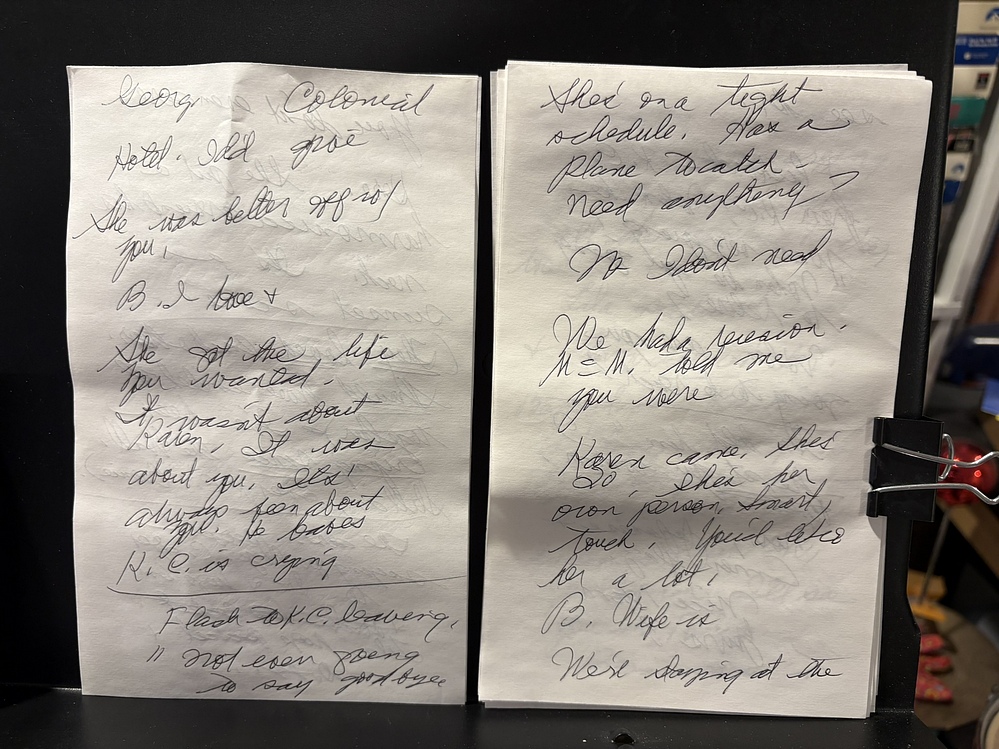 Georg Colonial
Hotel. Idd
She was better off w/
you,
B. I have +
She got the life
you wanted.
It wasn't about
Karen, It was
about you, Its'
always been about
you. He leaves
K. C. is crying
Flash to K.C. leaving,
" not even going
to say goodbye
She's on a tight
schedule. Has a
plane to catch -
need anything?
No I don't need
We had a reunion.
M = M. told me
you were
Karen came, She's
20, She's her
own person, Smart,
touch. You'd like
her a lot,
B. Wife is
We're staying at the